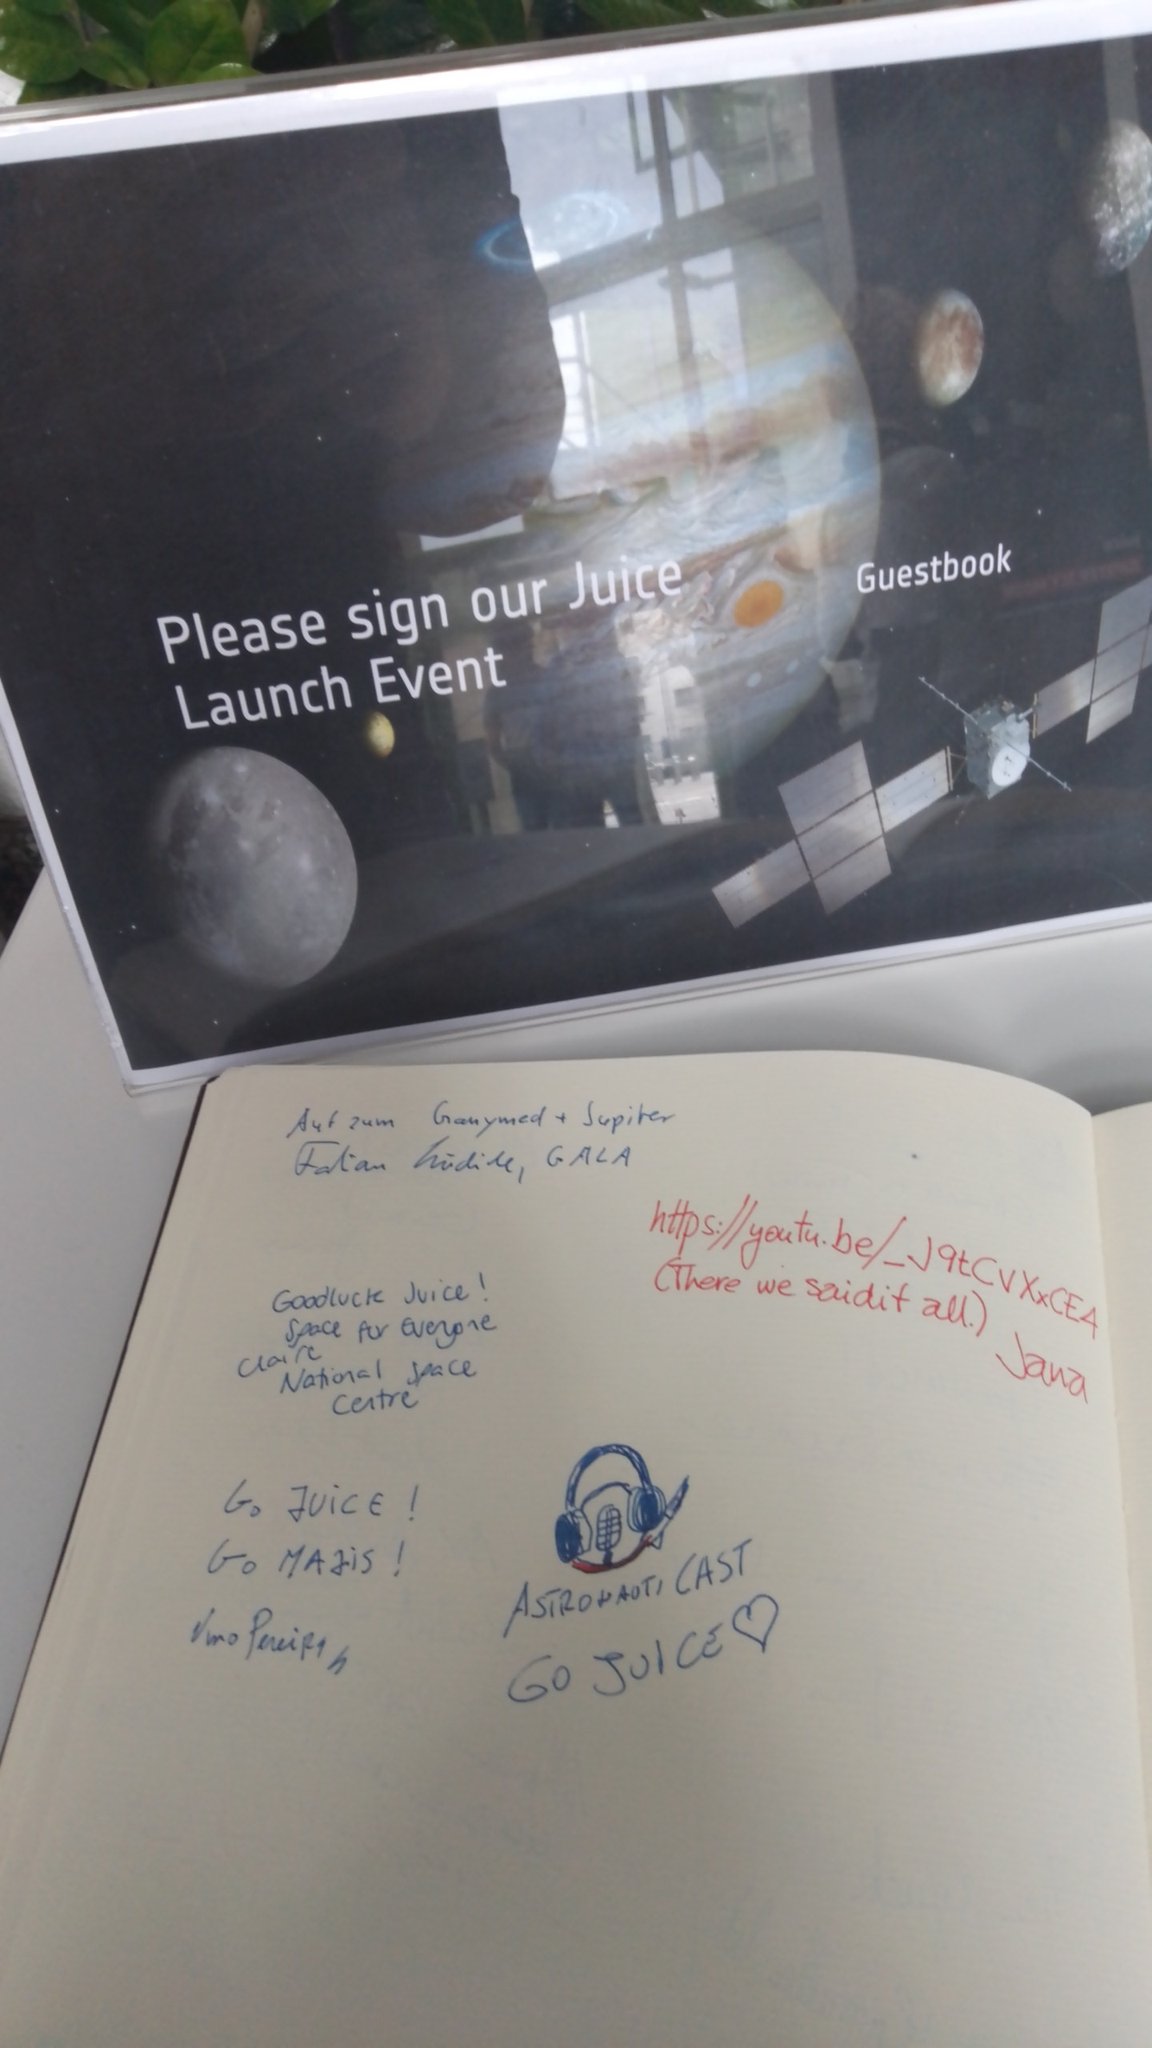 Please sign our Juice
Launch Event
Guestbook
Auf zum Ganymed + Jupiter
Fabian Lüdicke, GALA
https://youtu.be/_J9tCVXxCE4
(There we said it all.)
Jana
Goodluck Juice!
Space for Everyone
Claire
National Space
Centre
Go JUiCE!
Go MAJiS!
Nuno Pereira
ASTRONAUTICAST
GO JUICE